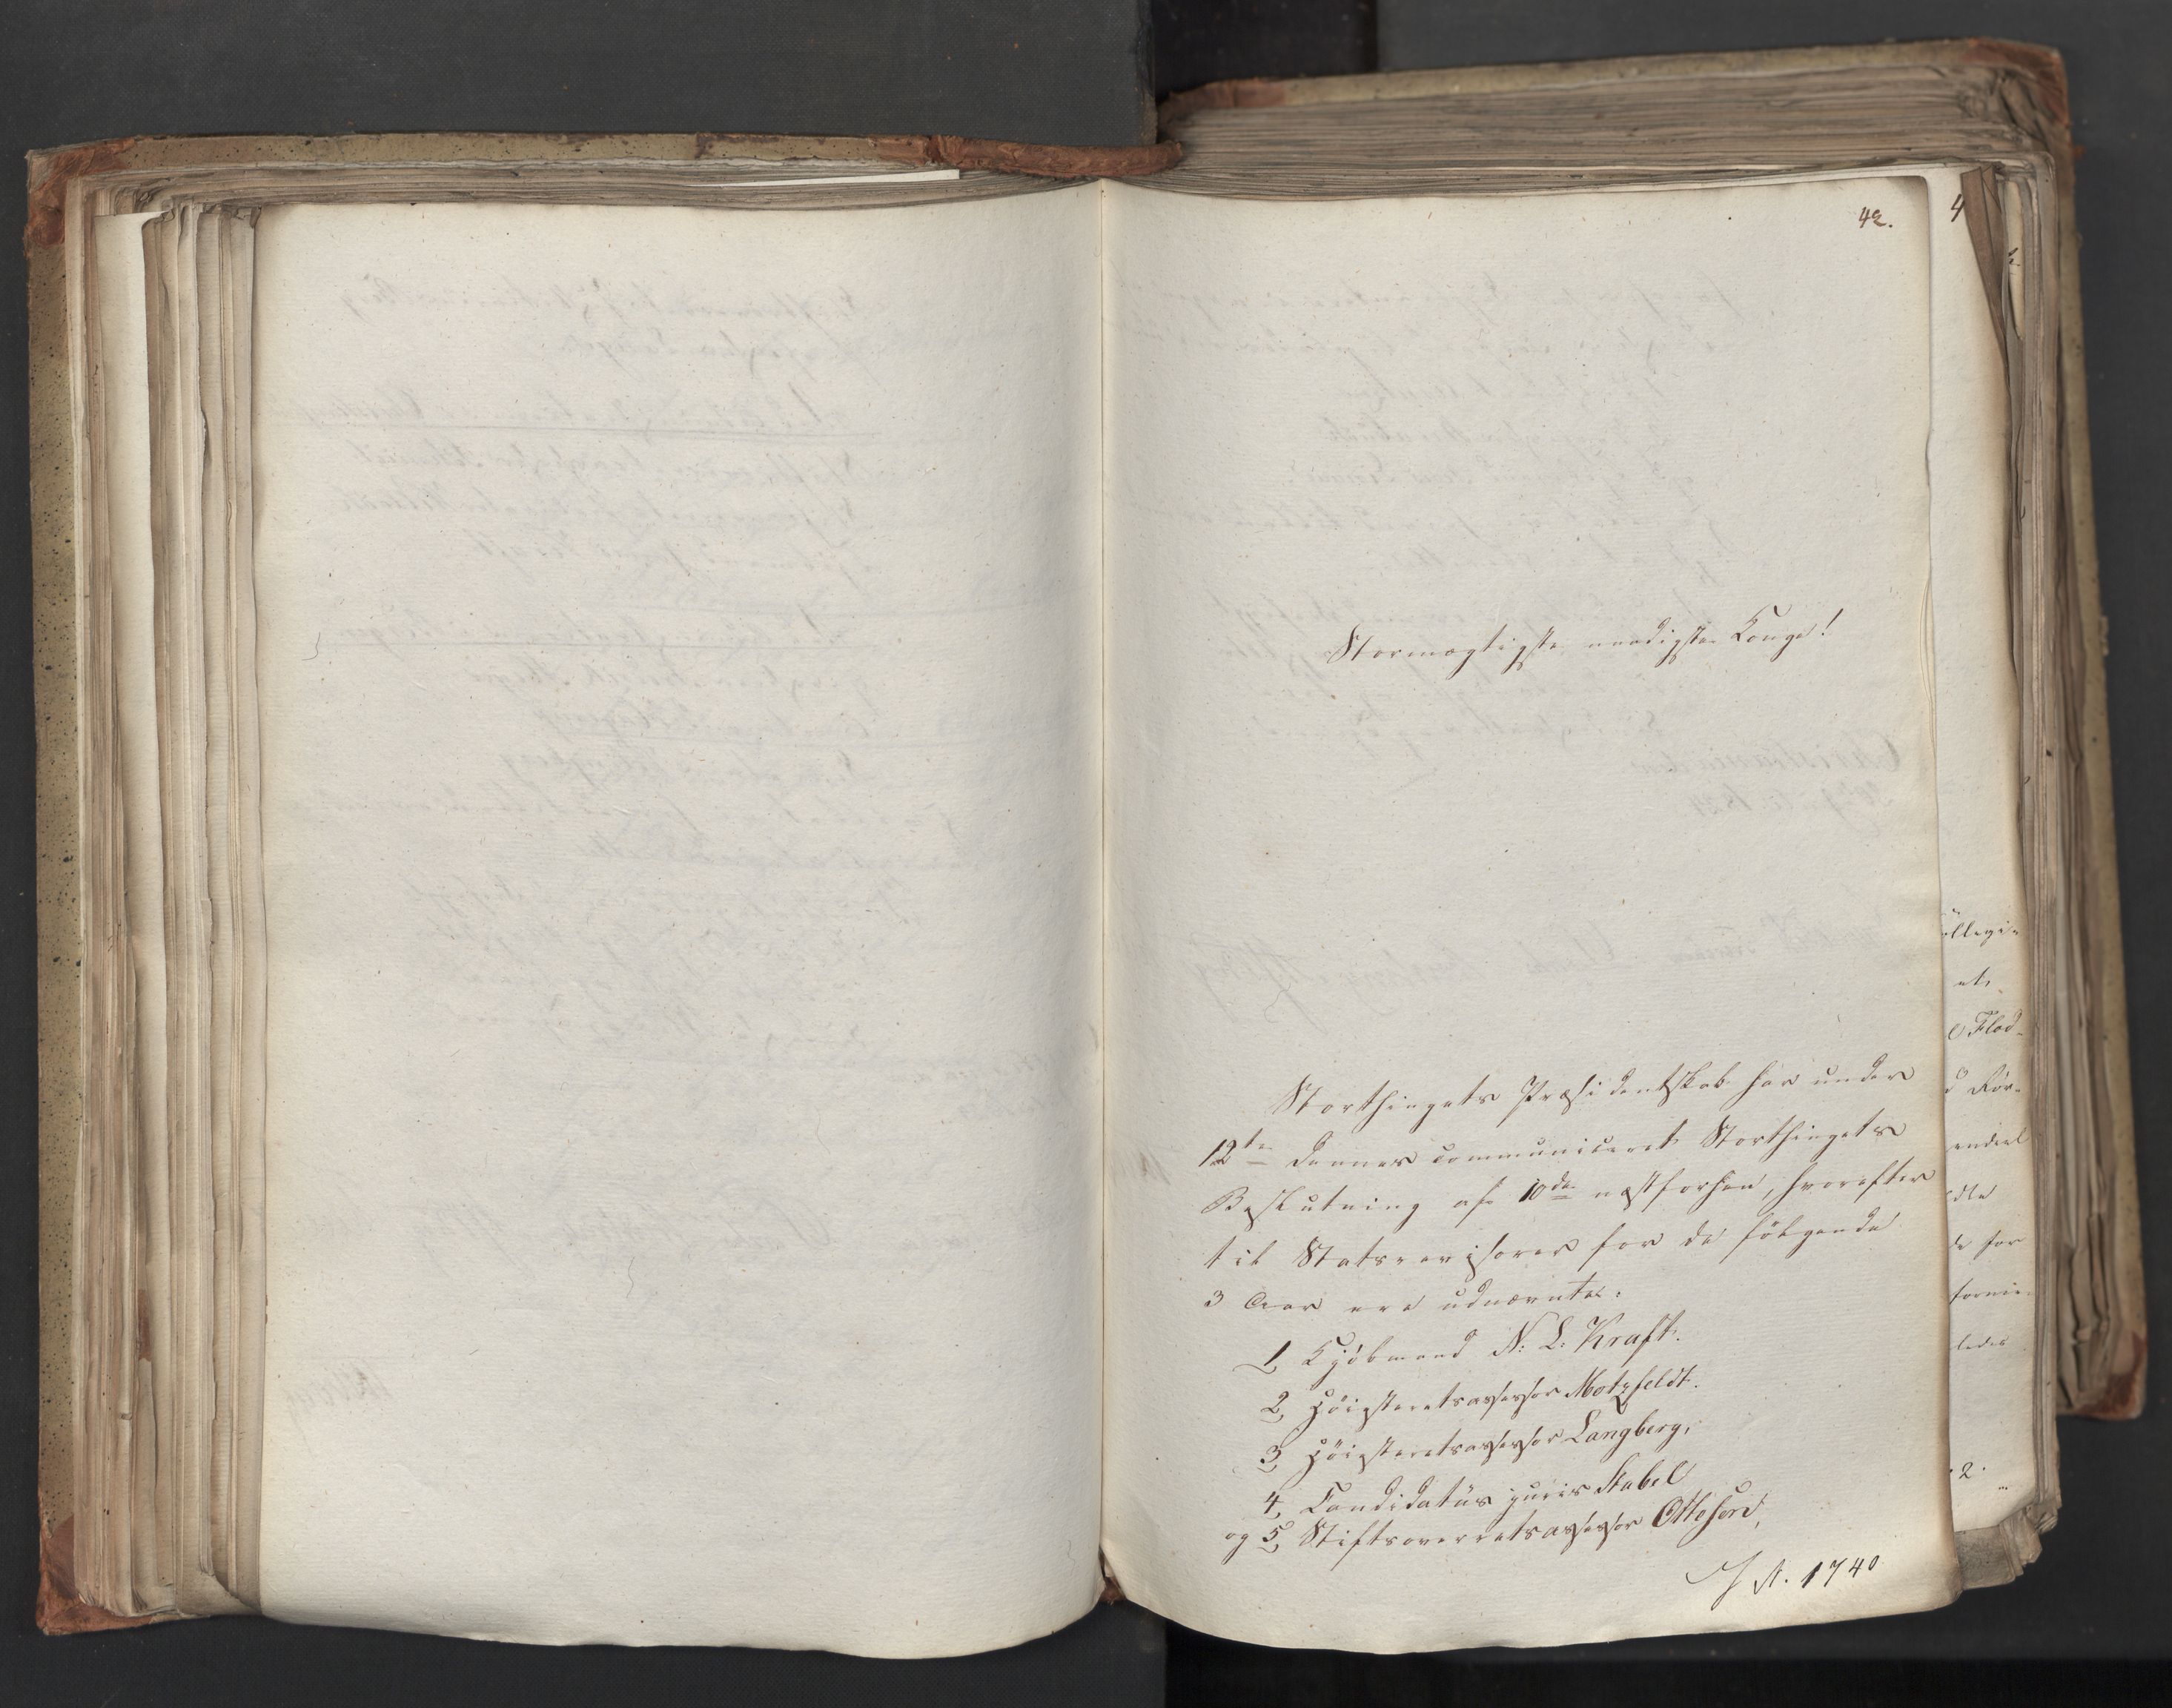 42.
Stormægtigste naadigste Konge!
Storthingets Præsidentskab har under
12te dennes communiceret Storthingets
Beslutning af 10de næstforhen, hvorefter
til Statsrevisorer for de følgende
3 Aar ere udnævnte:
1, Kjöbmand N: L: Kraft.
2, Höiesteretsassessor Motzfeldt.
3, Höiesteretsassessor Langberg,
4, Candidatus juris Stabel
og 5, Stiftsoverretsassessor Ottesen,
J N. 1740
4
ollegie
et
Flod-
Rör-
endeel
dte
de for
formie-
ledes
2.